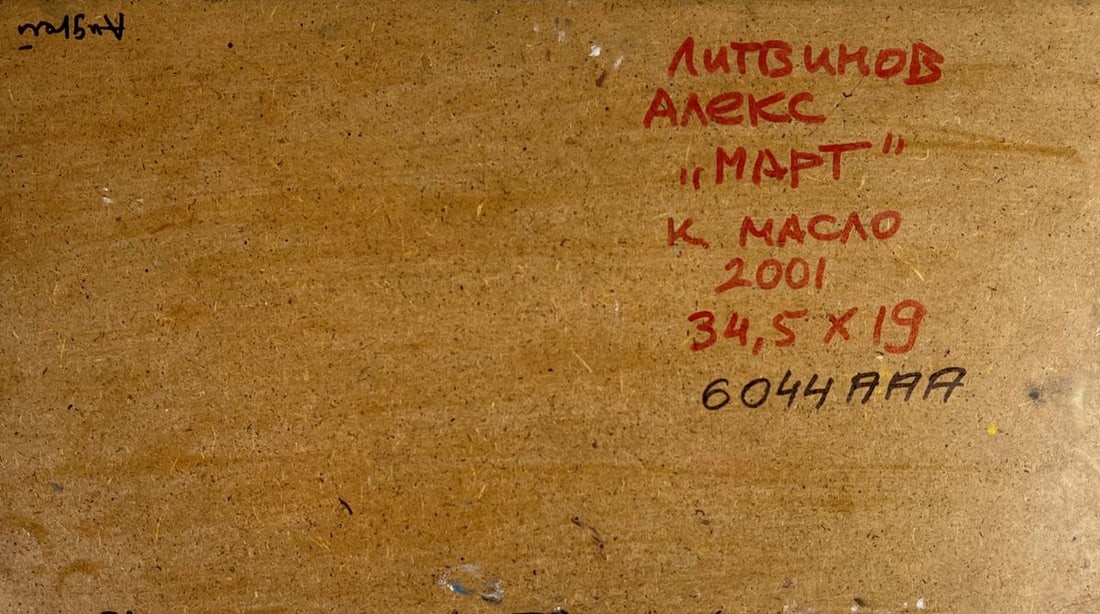 Андрей
ЛИТВИНОВ
АЛЕКС
„МАРТ"
К МАСЛО
2001
34,5 X 19
6044 AAA